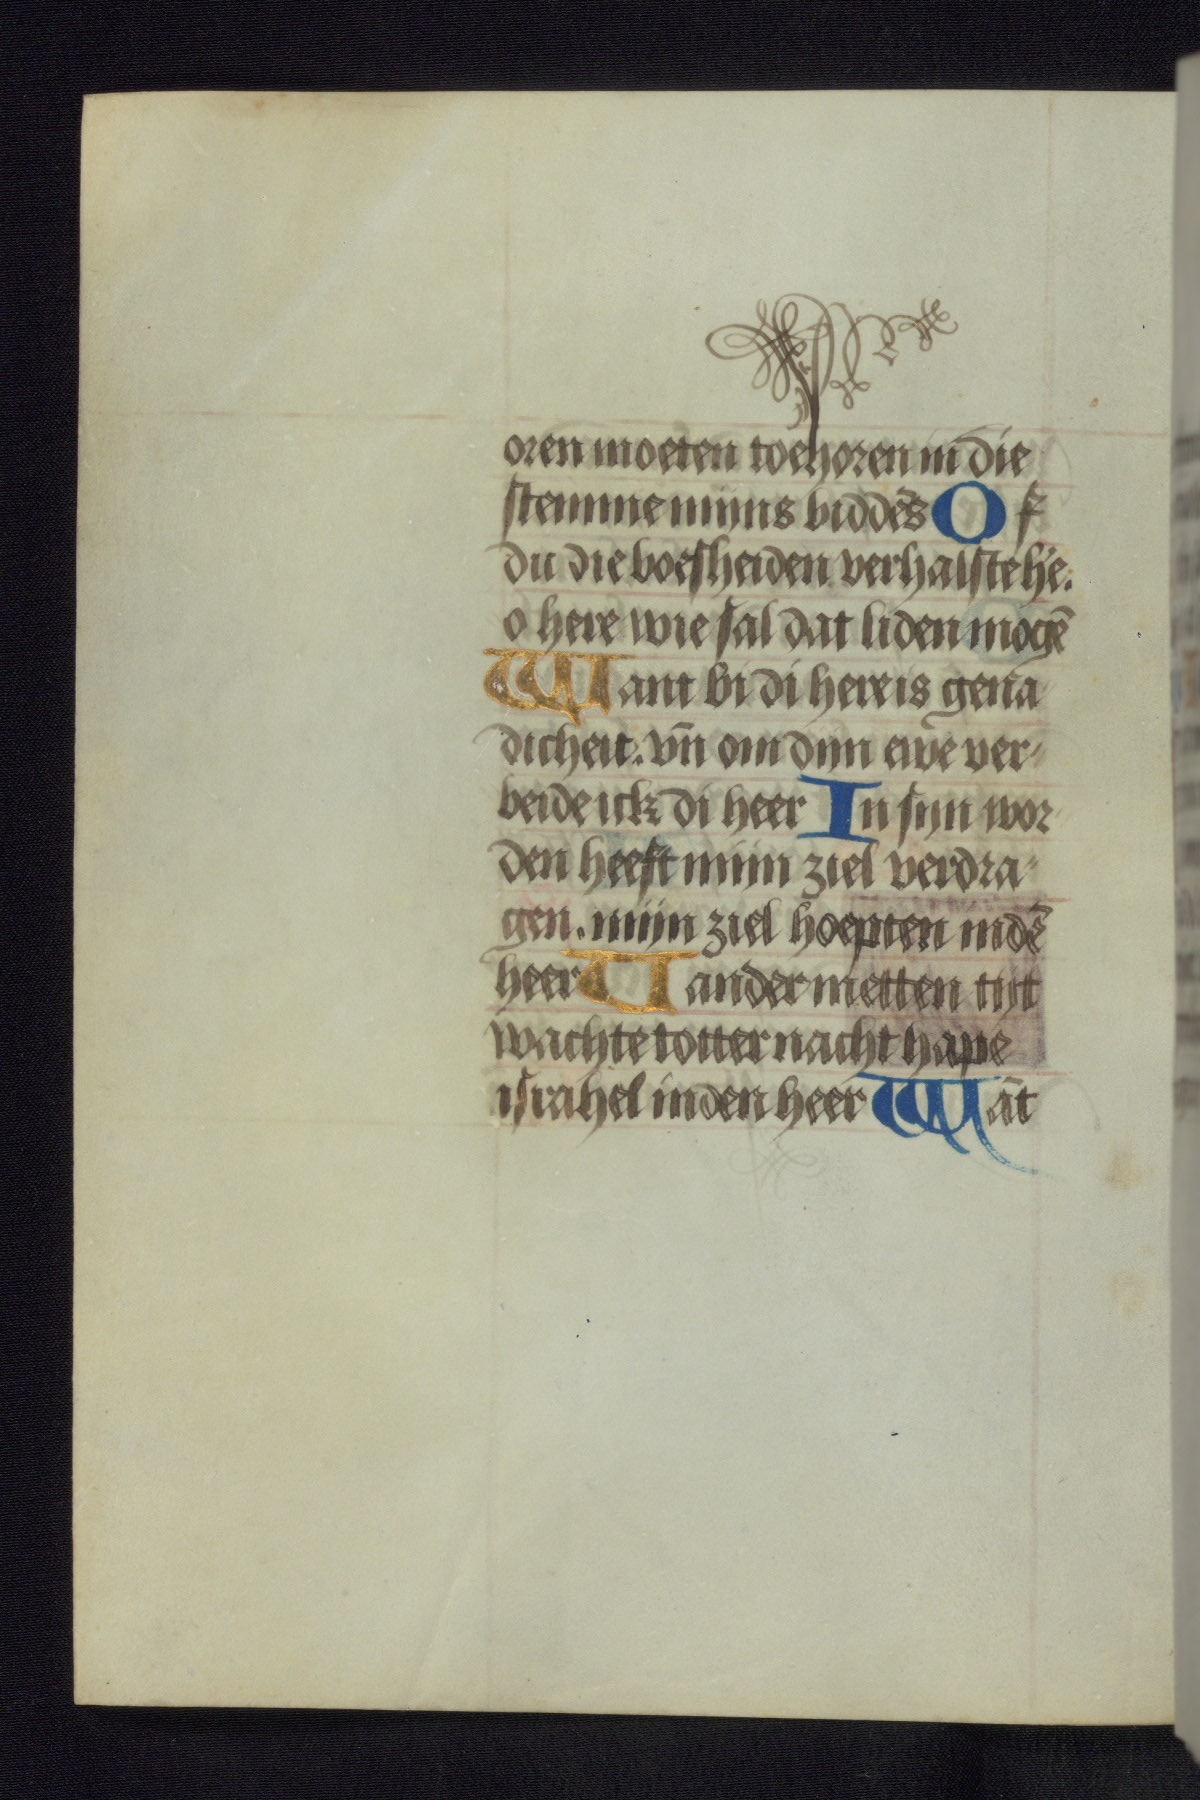 oren moeten toehoren in die
stemme mijns biddēs Of
du die boesheiden verhalste he.
o here wie sal dat liden mogē
Want bi di here is gena
dicheit. vn̄ om dyn ewe ver-
beide ick di heer In syn wor
den heeft mijn ziel verdra-
gen. mijn ziel hoepten in dē
heer Vander metten tyt
wachte totter nacht hape
israhel in den heer Wāt